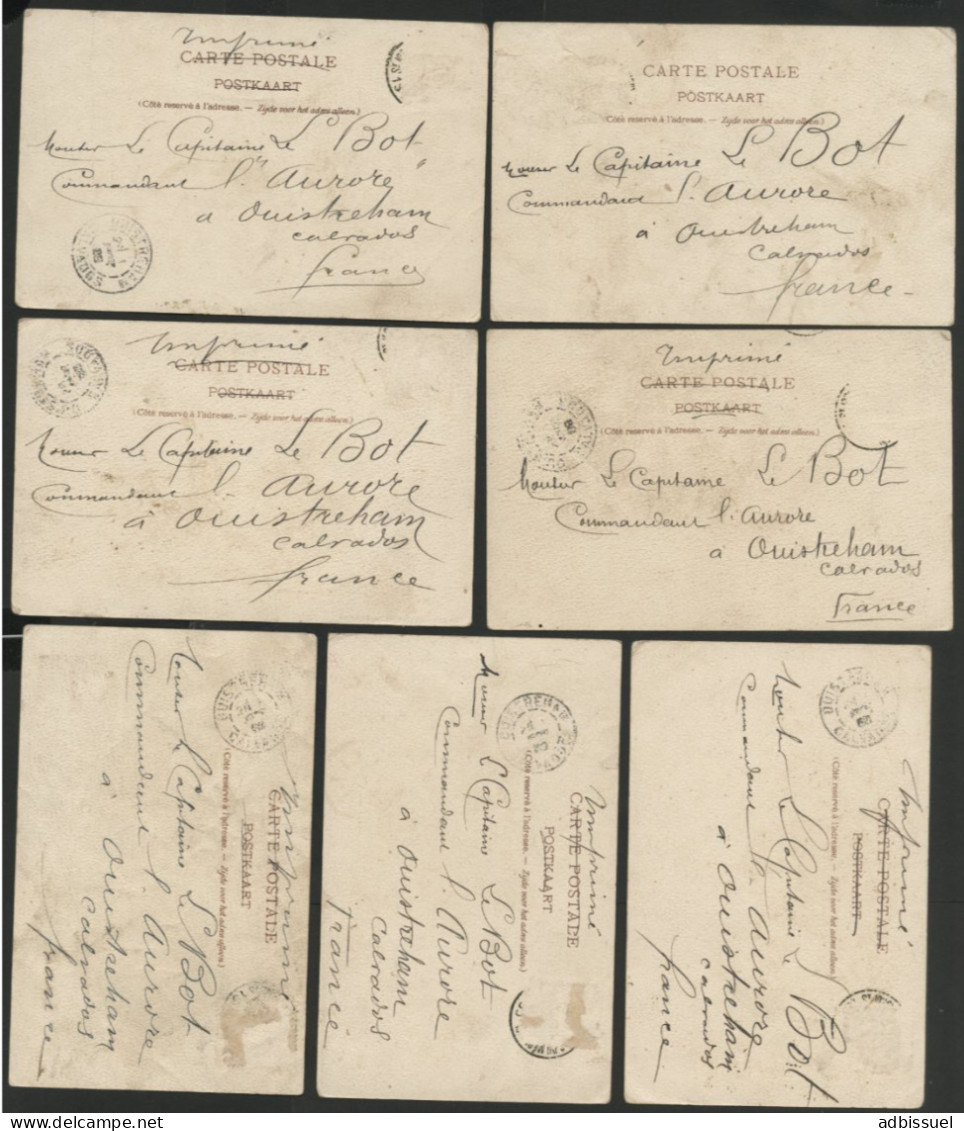 Imprimé
CARTE POSTALE
POSTKAART
(Côté reservé à l'adresse. — Zijde voor het adres alleen.)
Le Capitaine Le Bot
Commandant l' "Aurore"
à Ouistreham
Calvados
France
CARTE POSTALE
POSTKAART
(Côté reservé à l'adresse. — Zijde voor het adres alleen.)
Le Capitaine Le Bot
Commandant l' Aurore
à Ouistreham
Calvados
France
Imprimé
CARTE POSTALE
POSTKAART
(Côté reservé à l'adresse. — Zijde voor het adres alleen.)
Le Capitaine Le Bot
Commandant l' Aurore
à Ouistreham
Calvados
France
Imprimé
CARTE POSTALE
POSTKAART
(Côté reservé à l'adresse. — Zijde voor het adres alleen.)
Le Capitaine Le Bot
Commandant l' Aurore
à Ouistreham
Calvados
France
Imprimé
CARTE POSTALE
POSTKAART
(Côté reservé à l'adresse. — Zijde voor het adres alleen.)
Le Capitaine Le Bot
Commandant l' Aurore
à Ouistreham
Calvados
France
Imprimé
CARTE POSTALE
POSTKAART
(Côté reservé à l'adresse. — Zijde voor het adres alleen.)
OUISTREHAM
Le Capitaine Le Bot
Commandant l' Aurore
à Ouistreham
Calvados
France
Imprimé
CARTE POSTALE
POSTKAART
(Côté reservé à l'adresse. — Zijde voor het adres alleen.)
Le Capitaine Le Bot
Commandant l' Aurore
à Ouistreham
Calvados
France
adbissuel